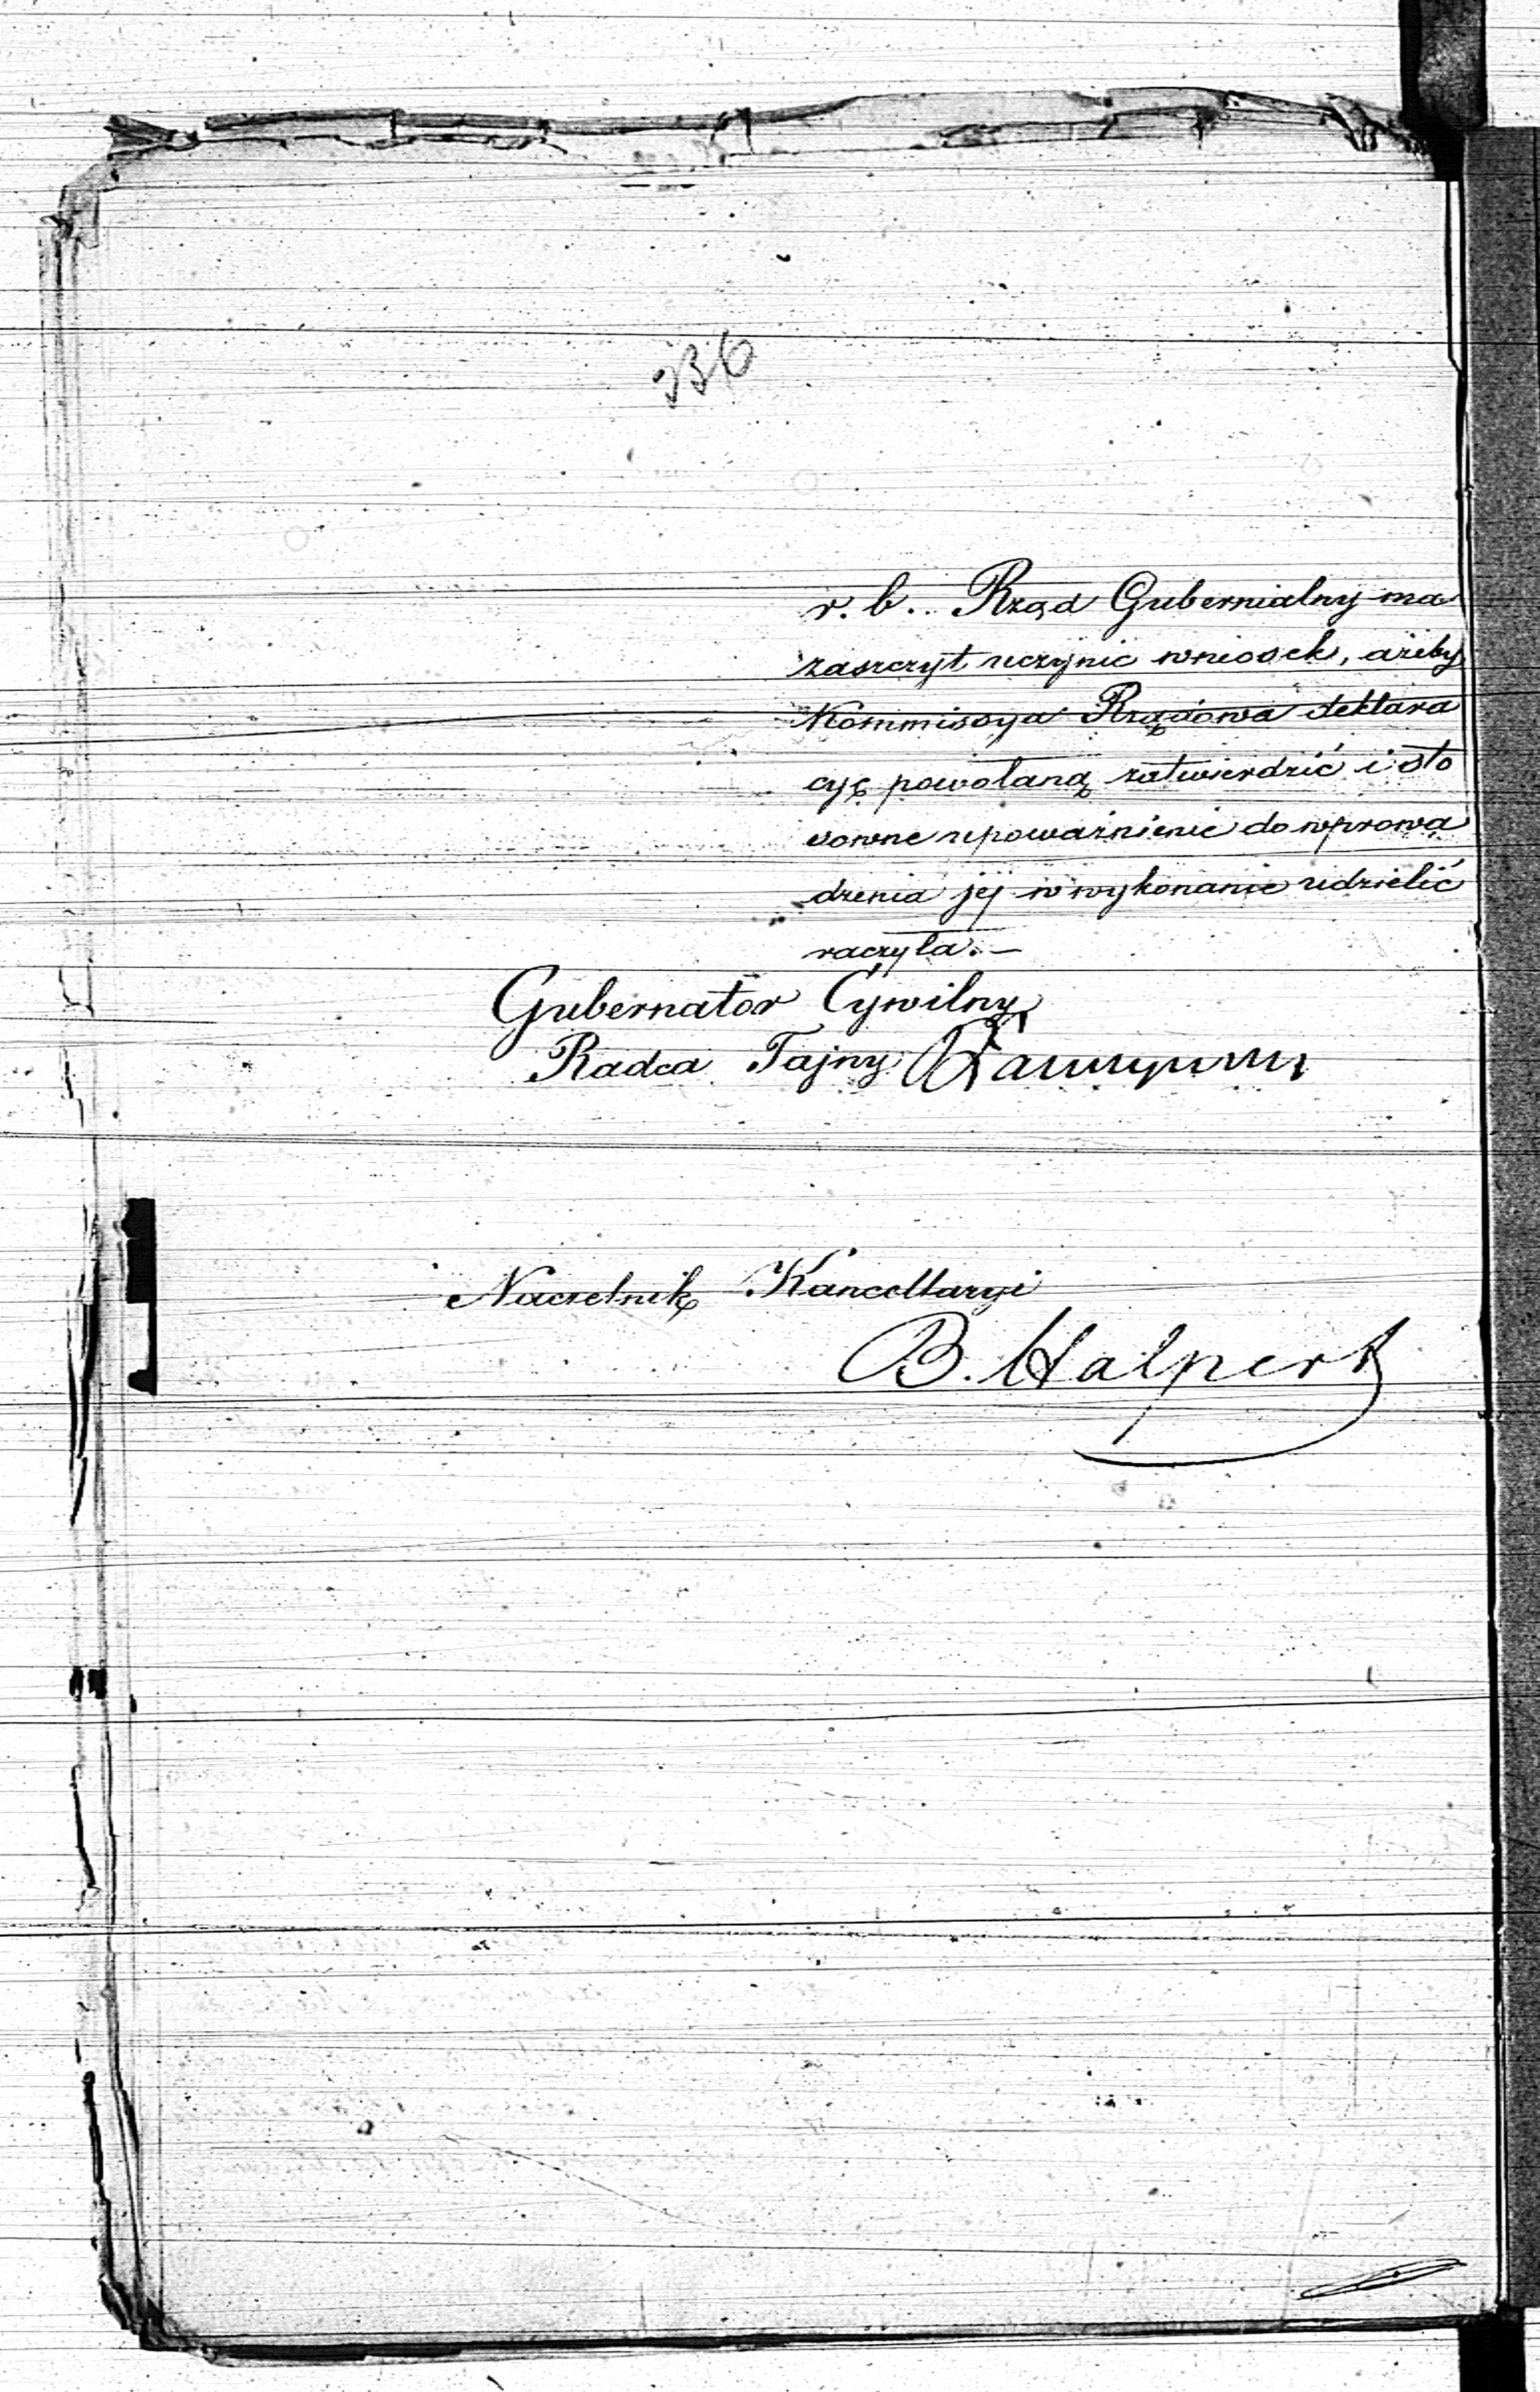 336
r. b. Rząd Gubernialny ma
zaszczyt uczynic wniosek, ażeby
Kommissya Rządowa deklara
cyę powołaną zatwierdzić i sto
sowne upoważnienie do wprowa
dzenia jej w wykonanie udzielić
raczyła.—
Gubernator Cywilny
Radca Tajny
Naczelnik Kancellaryi
B. Halpert